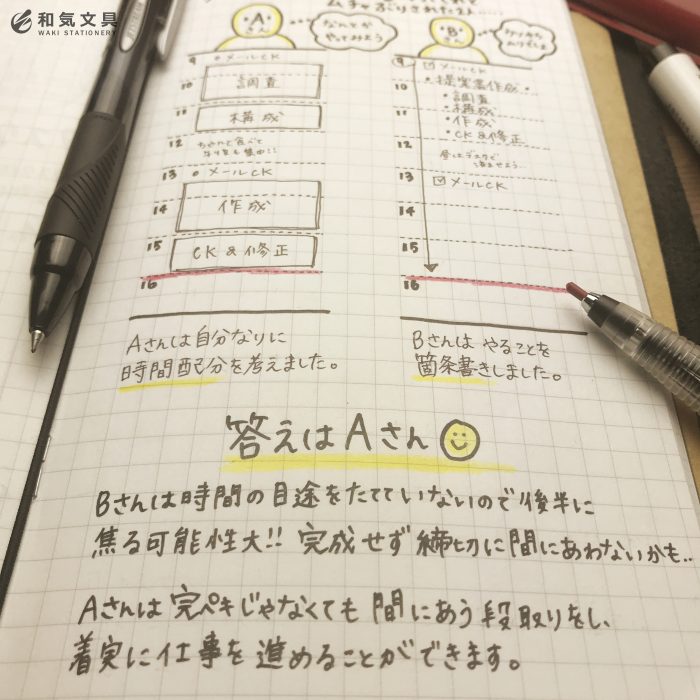 和気文具
WAKI STATIONERY
ムチャぶりされて
Aさん
なんとか
やってみよう
9 メールCK
10 調査
11 構成
12
13 メールCK
14 作成
15 CK&修正
16
Aさんは自分なりに
時間配分を考えました。
Bさん
9 メールCK
・提案書作成・
10 ・調査
・構成
11 ・作成
・CK&修正
12
13 メールCK
14
15
16
Bさんは やることを
箇条書きしました。
答えはAさん
Bさんは時間の目途をたてていないので後半に
焦る可能性大!! 完成せず締切に間にあわないかも..
Aさんは完ペキじゃなくても間にあう段取りをし、
着実に仕事を進めることができます。